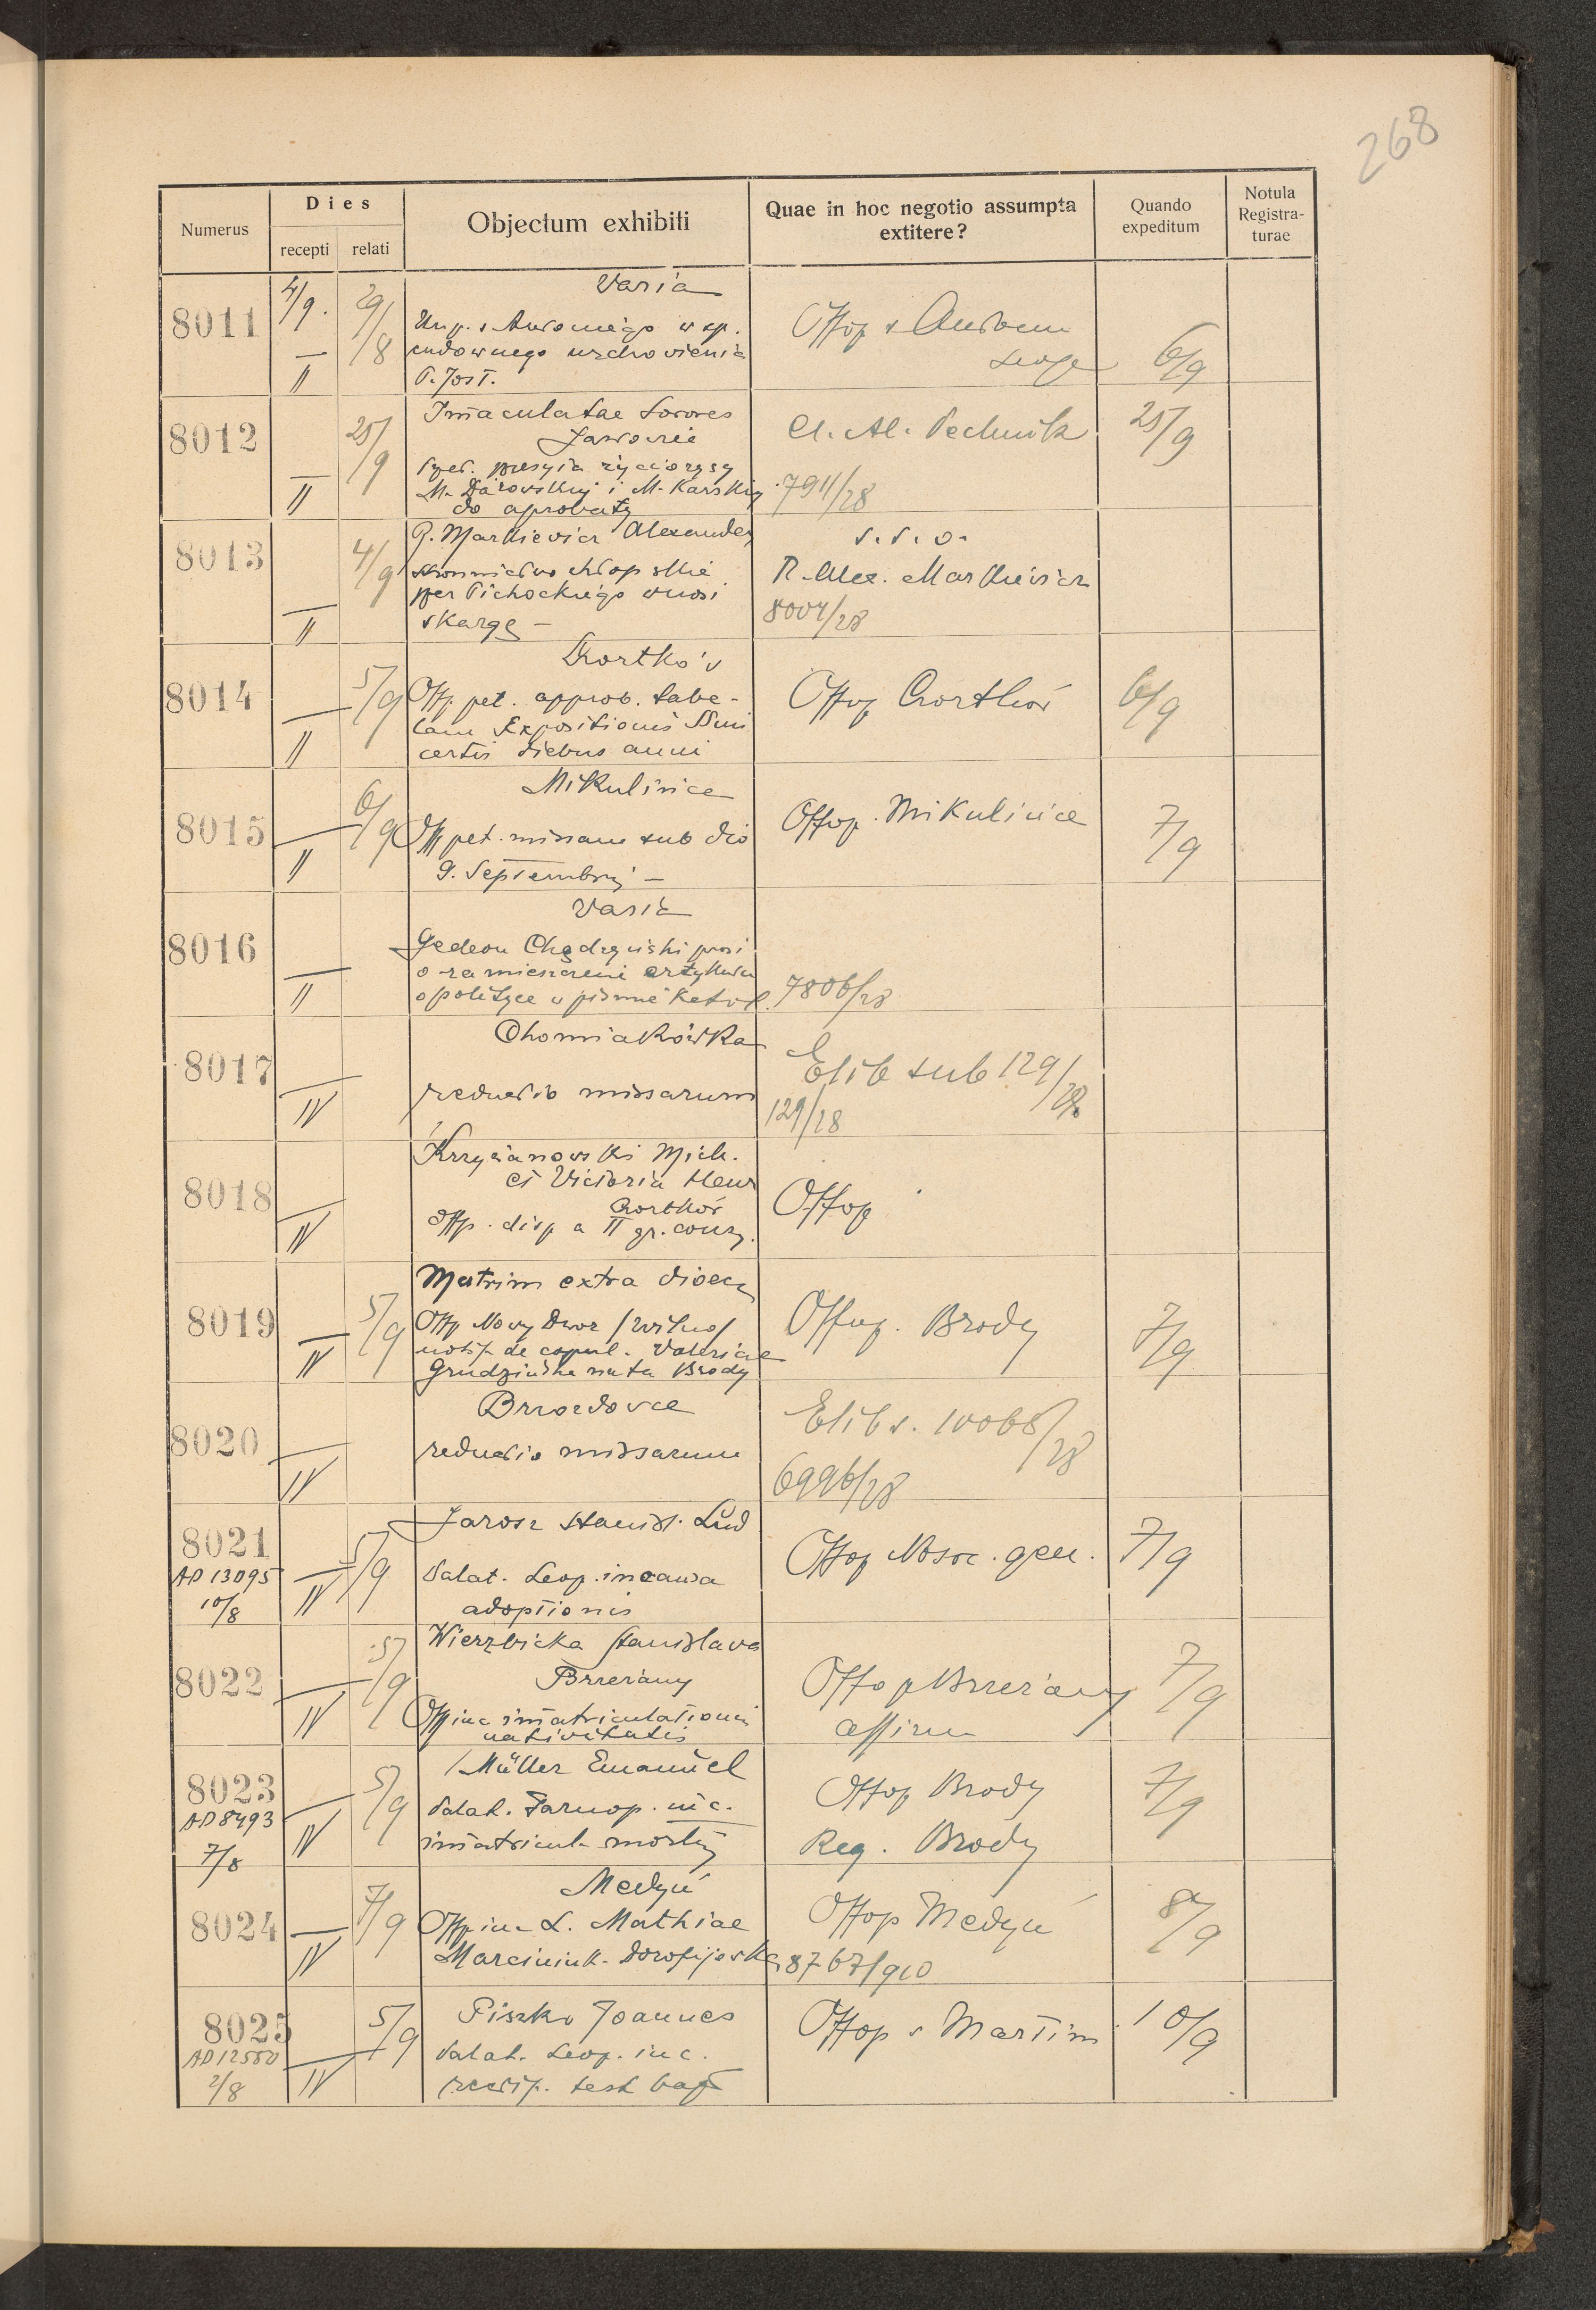 268
Numerus
Dies
recepti
relati
Objectum exhibiti
Quae in hoc negotio assumpta extitere?
Quando expeditum
Notula Registra-
turae
8011
4/9.
29/8
II
Varia
Urz. p. s Antoniego w sp.
cudownego uzdrowienia
P. Jost.
Offop s Antonii
Leop
6/9
8012
25/9
II
Imaculatae Sorores
Jarowie
M. Darowskiej i M. Karskiej
do aprobaty
Cl. Al. Pechnik
7911/28
25/9
8013
4/9
II
P. Markievicz Alexander
stronnictwo chłopskie
per Cichockiego wnosi
skargę -
s. s. o.
R. Alex. Markievicz
8004/28
8014
5/9
II
Czortków
Offp. pet. approb. tabe-
lam Expositionis SSmi
certis diebus anni
Offop Czortków
6/9
8015
6/9
II
Mikulińce
Offp pet. missam sub dio
9. Septembrij -
Offop. Mikulińce
7/9
8016
II
Varia
Gedeon Chądzyński prosi
o zamieszczenie artykułu
o polityce w piśmie katol.
7806/28
8017
IV
Chomiakówka
reductio missarum
Elib sub 129/28
129/28
8018
IV
Krzyżanowski Mich.
et Victoria Henr
Czortków
Offp. disp a II gr. cons.
Offop
8019
5/9
IV
Matrim extra dioec
Offp Nowy Dwor / Wilno /
notif. de copul. Valeriae
Grudzińska nata Brody
Offop. Brody
7/9
8020
IV
Brzozdowce
reductio missarum
Elib s. 10068/28
6996/28
8021
AD 13095
10/8
5/9
IV
Jarosz Stanisl. Lud
Palat. Leop. in causa
adoptionis
Offop Nosoc. gen.
7/9
8022
5/9
IV
Wierzbicka Stanislava
Brzeżany
Offp in c imatriculationis
nativitatis
Offop Brzeżany
affirm
7/9
8023
AD 8493
7/8
5/9
IV
Müller Emanuel
Palat. Tarnop. in c.
imatricul. mortis
Offop Brody
Reg. Brody
7/9
8024
7/9
IV
Medyń
Offp in c L. Mathiae
Marciniuk-Dorofijowska
Offop Medyń
8767/910
8/9
8025
AD 12550
2/8
5/9
IV
Piszko Joannes
Palat. Leop. in c.
rectif. test bapt
Offop s Martini
10/9